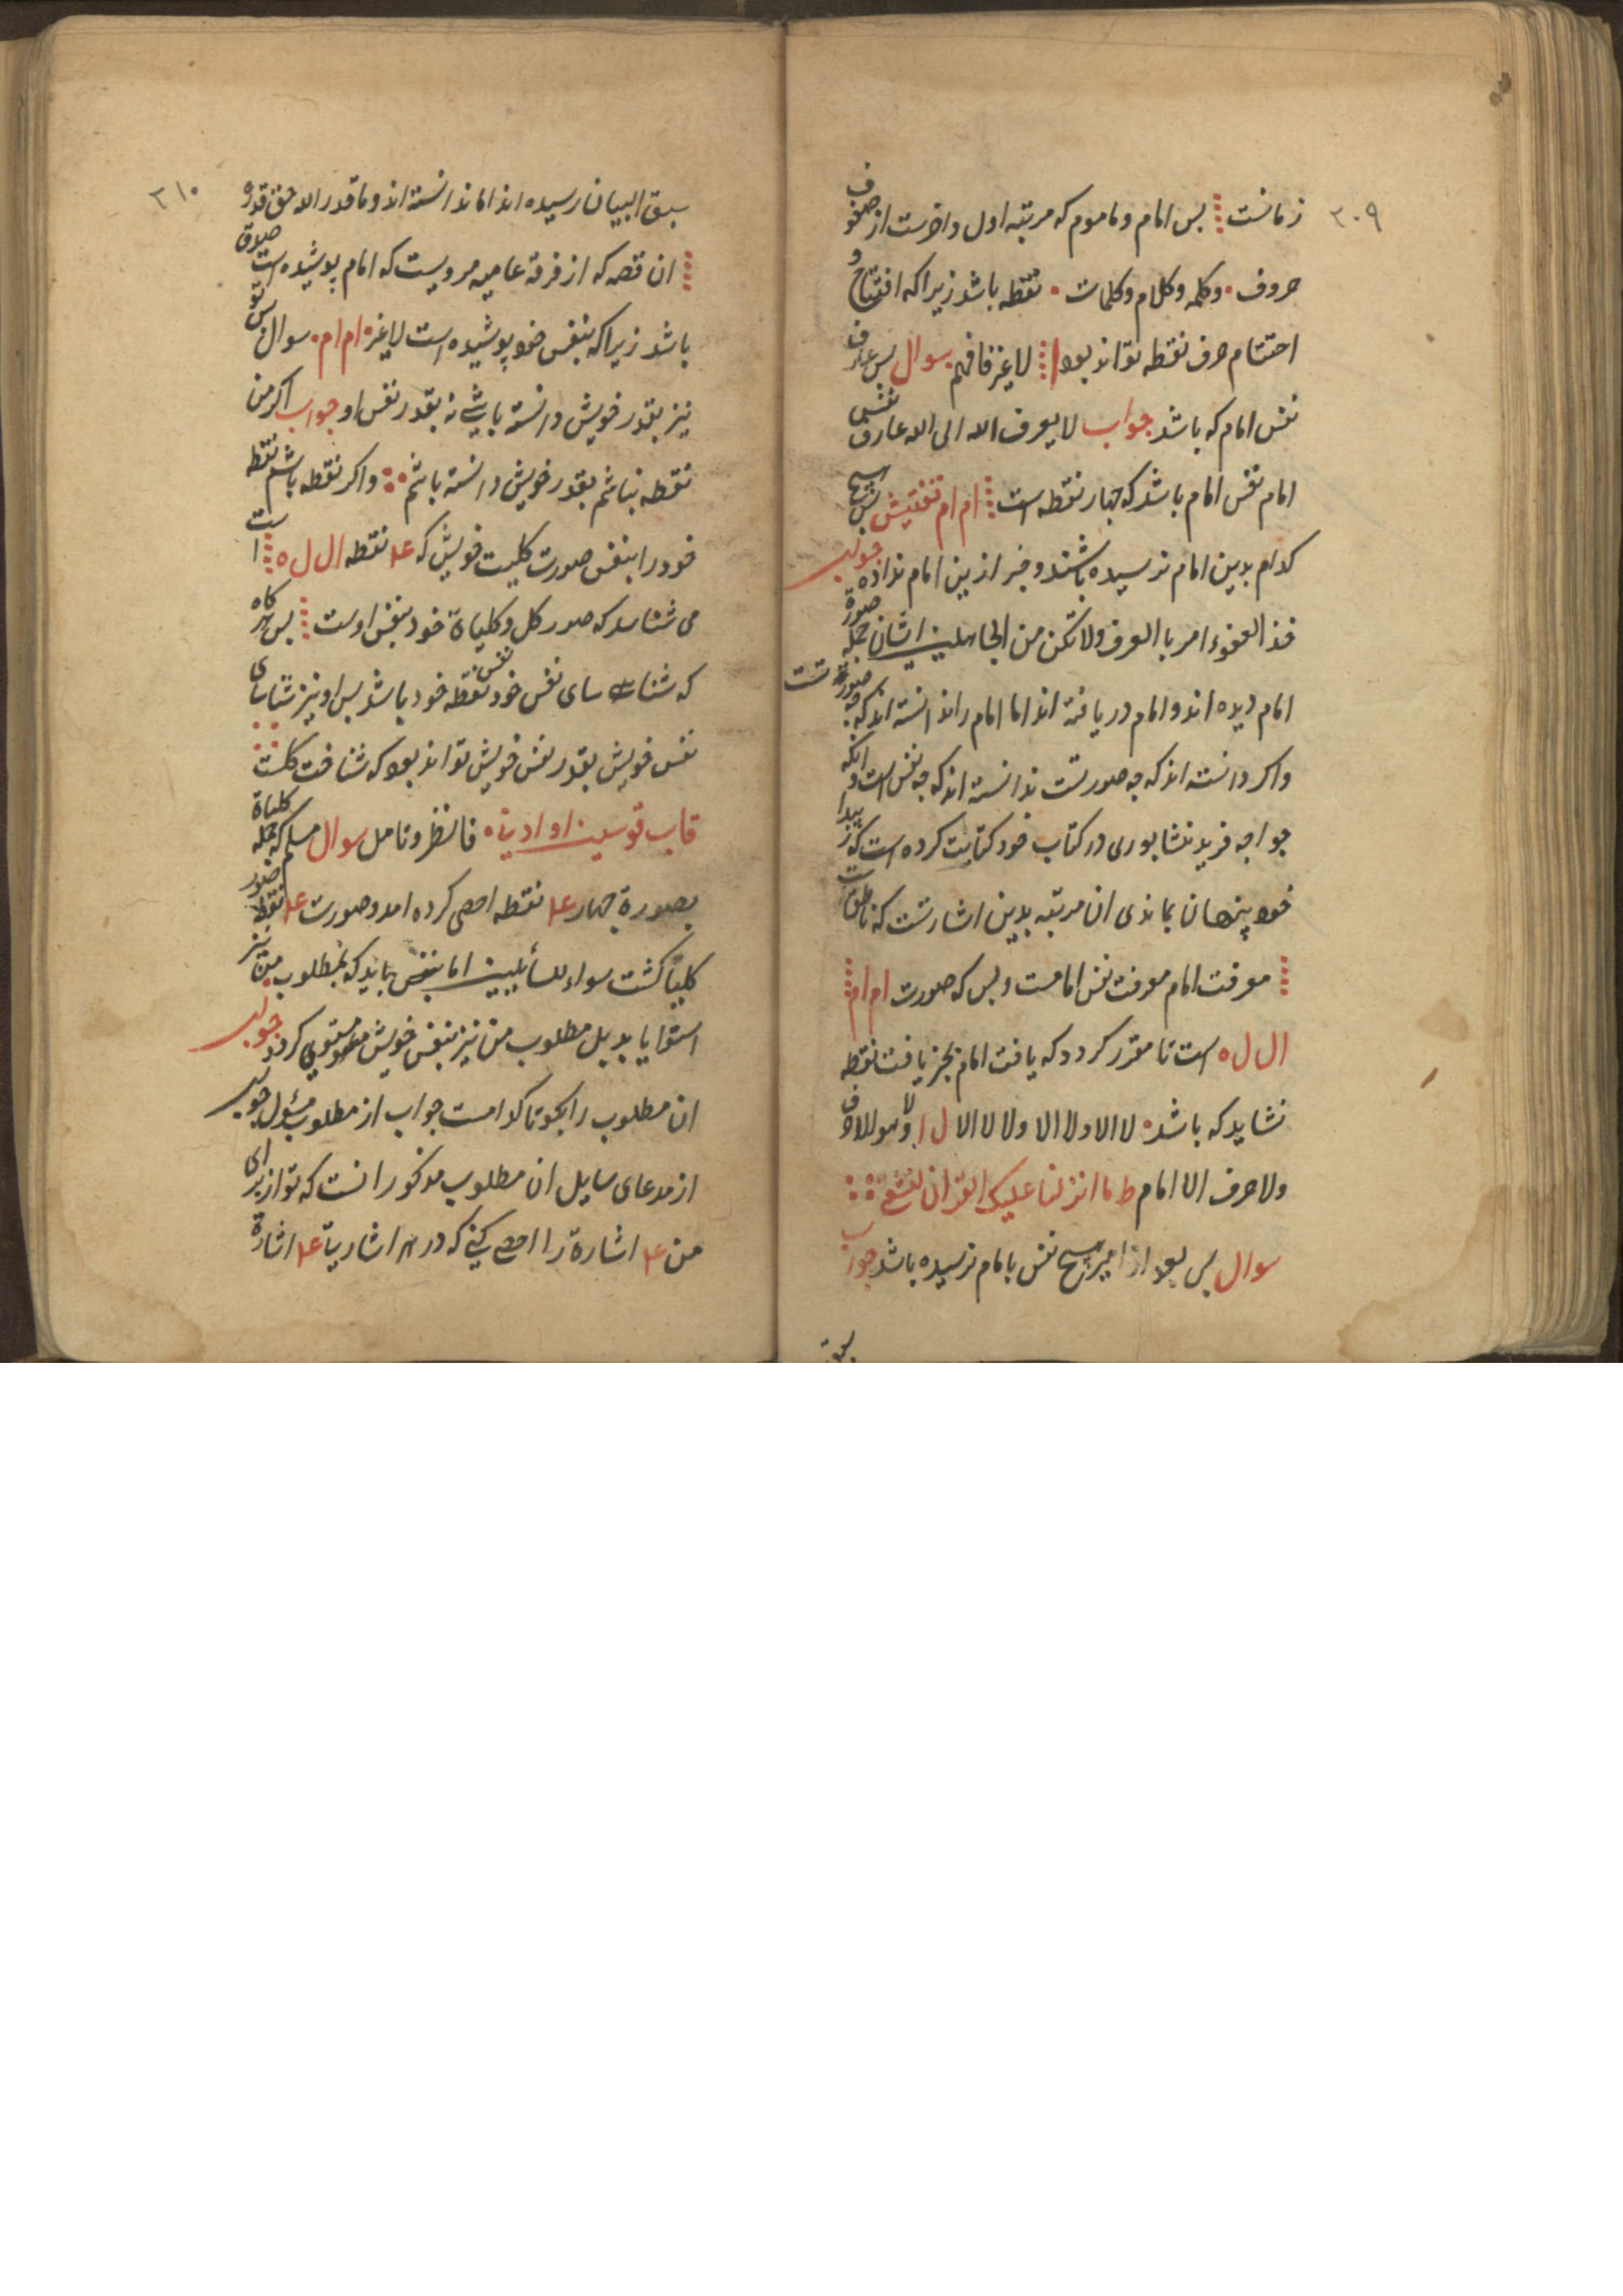 ۳۰۹
زمانست ⁞ بس امام و ماموم که مرتبه اول و اخرست از صفوف
حروف • و کلمه و کلام و کلمات • نقطه باشد زیرا که افتتاح و
احتتام حرف نقطه تواند بود ا ⁞ لا غیر فافهم سوال بس عارف
نفس امام که باشد جواب لا یعرف الله الی الله عارف نفسی
امام نفس امام باشد که چهار نقطه است ⁞ ام ام تفتیش بس
کدام بدین امام نرسیده باشند و خبر ازین امام نداده جواب
خذ العفوء امر با العرف ولا تکن من الجاهلین ایشان جمله صورة
امام دیده اند و امام دریافته اند اما امام را ندانسته اند که چه صورتست
و اکر دانسته اند که چه صورتست ندانسته اند که چه نفس است و انکه
خواجه فرید نشابوری در کتاب خود کتابت کرده است که ز پیدا
خود پنهان بماندی ان مرتبه بدین اشارتست که ناطقست
⁞ معرفت امام معرفت نفس امامست و بس که صورت ام ام ⁞
ال ل ه است تا مقرر کردد که یافت امام بجز یافت نقطه
نشاید که باشد ه لا الا ولا الا ولا لا الا ل ا
ولا حرف الا امام ط ما انزلنا علیک القران لتشقی
سوال بس بعد از امیر هیچ نفس بامام نرسیده باشد جواب
سبق
۳۱۰
سبق البیان رسیده اند اما ندانسته اند و ما قدر الله حق قدره
⁞ ان قصه که از فرقه عامیه مرویست که امام پوشیده است صدق
باشد زیرا که بنفس خود پوشیده است لا غیره ام ام • سوال بس تو
نیز بقدر خویش دانسته باشی نه بقدر نفس او جواب اکر من
نقطه نباشم بقدر خویش دانسته باشم و اکر نقطه باشم نقطه
خود را بنفس صورت کلیت خویش که ۴ نقطه ال ل ه ⁞ است
می شناسد که صور کل و کلیاة خود بنفس اوست ⁞ بس هر کاه
که شناسای نفس خود نفس نقطه خود باشد بس او نیز شناسای
نفس خویش بقدر نفس خویش تواند بود که شناخت کلست
قاب قوسین او ادنی ه فانظر و تامل سوال مسلم که جمله کلیاة
بصورة چهار ۴ نقطه احصی کرده امد و صورت ۴ نقطه صور
کلیا کشت سواء للسائلین اما بنفس باید که بمطلوب من نیز
استوا یابد بل مطلوب من نیز بنفس خویش مستوی کردد جواب
ان مطلوب را بکو تا کدامست جواب از مطلوب مسئول جواب
از مدعای سایل ان مطلوب مذکور انست که تو از برای
من ۴ اشارة را احصی کنی که در هر اشاریة ۴ اشارة